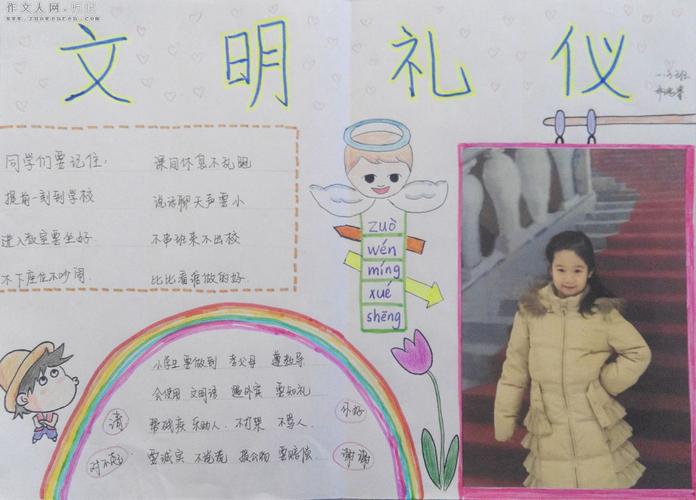 作文人网
www.zuowenren.com
文明礼仪
同学们要记住，
课间休息不乱跑
提前一刻到学校
说话聊天声要小
进入教室要坐好
不串班来不出校
不下座位不吵闹
比比看谁做的好
zuò
wén
míng
xué
shēng
小学生要做到 孝父母 遵教导
会使用 文明语 遇外宾 要知礼
帮残疾 乐助人 不打架 不骂人
要诚实 不说谎 损公物 要赔偿
请
你好
对不起
谢谢